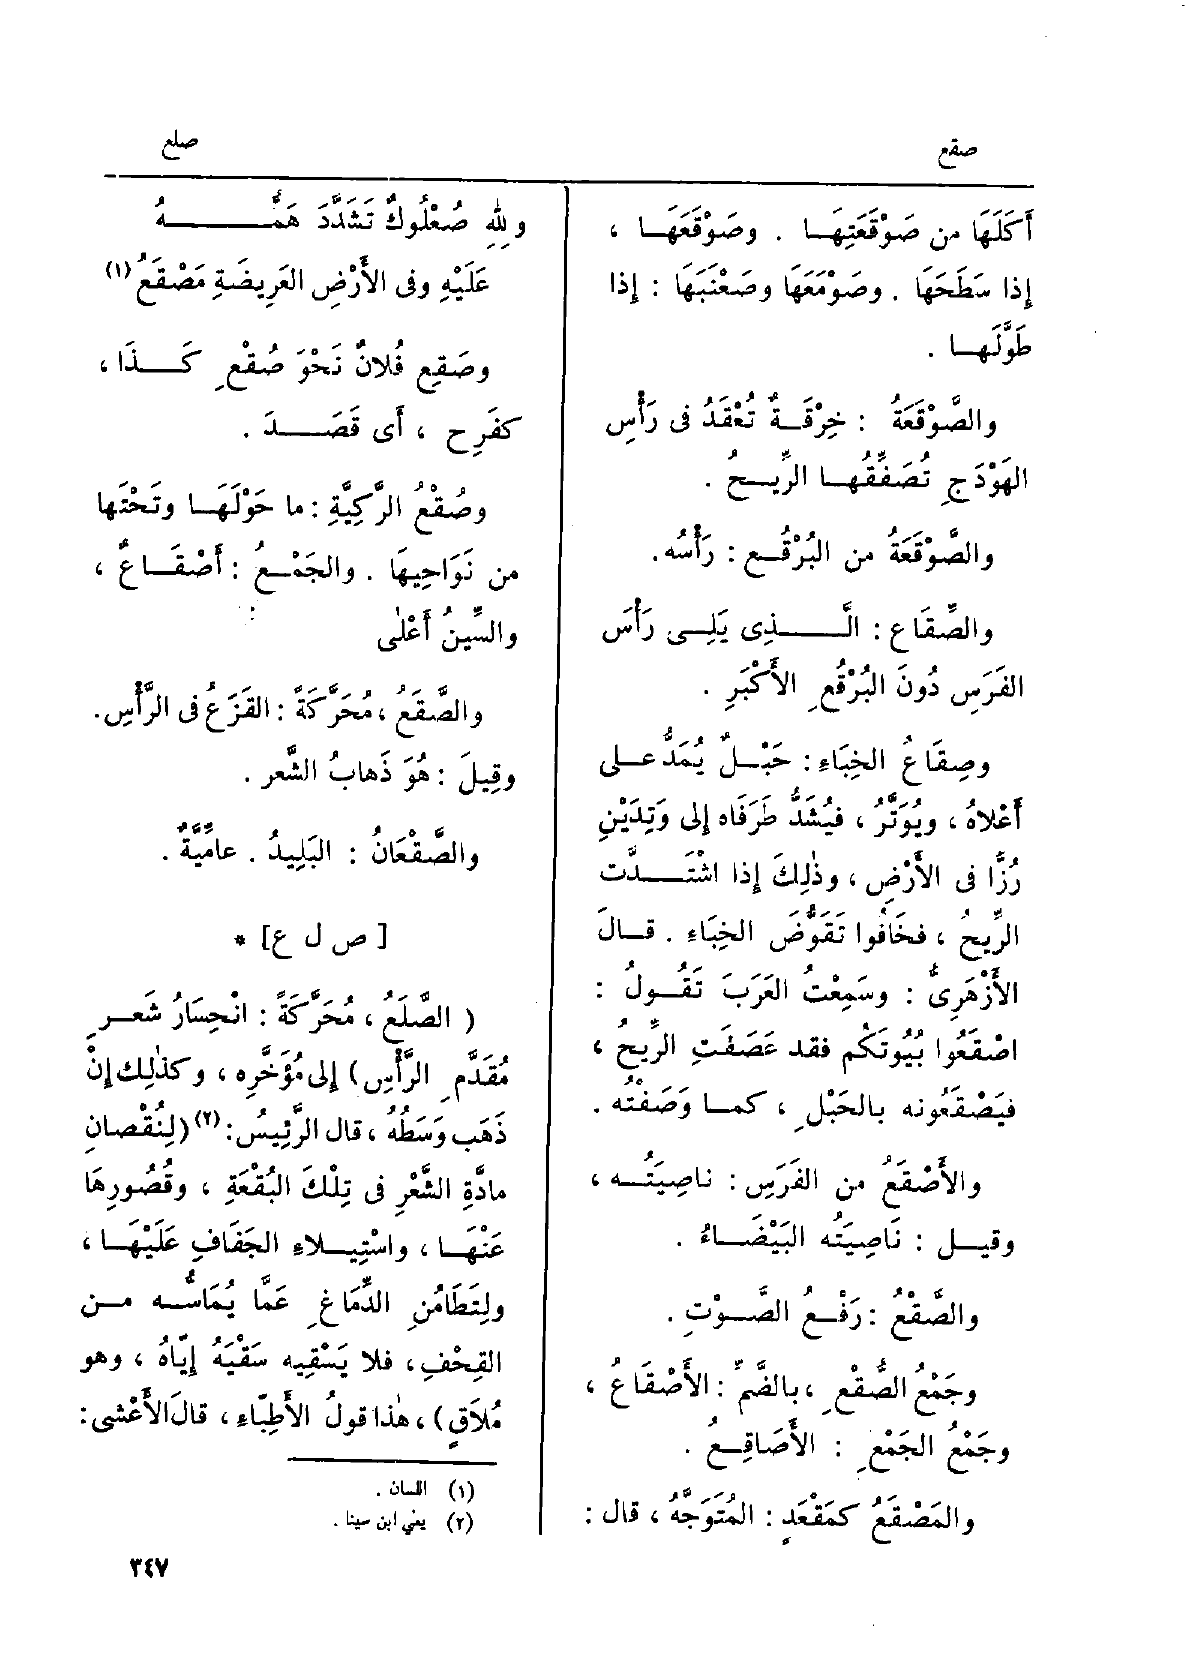 صقع
صلع
أَكَلَهَا من صَوْقَعَتِهَـا . وصَوْقَعَهَـا ،
إذا سَطَحَهَا . وصَوْمَعَهَا وصَعْنَبَهَا : إذا
طَوَّلَهـا .
والصَّوْقَعَةُ : خِرْقَـةٌ تُعْقَدُ فى رَأْسِ
الهَوْدَجِ تُصَفِّقُهـا الرِّيـحُ .
والصَّوْقَعَةُ من البُرْقُـعِ : رَأْسُه.
والصِّقَاعِ : الَّـــذِى يَلِـى رَأْسَ
الفَرَسِ دُونَ البُرْقُعِ الأَكْبَرِ .
وصِقَاعُ الخِبَاءِ : حَبْـلٌ يُمَدُّ عـلى
أَعْلاهُ ، ويُوَتَّرُ ، فيُشَدُّ طَرَفَاه إلى وَتِدَيْنِ
رُزَّا فى الأَرْضِ ، وذٰلِكَ إذا اشْتَـــدَّت
الرِّيحُ ، فخَافُوا تَقَوُّضَ الخِبَاءِ . قـالَ
الأَزْهَرِىُّ : وسَمِعْتُ العَرَبَ تَقُـولُ :
اصْقَعُوا بُيُوتَكُم فقد عَصَفَتِ الرِّيحُ ،
فيَصْقَعُونه بالحَبْلِ ، كمـا وَصَفْتُه .
والأَصْقَعُ من الفَرَسِ : ناصِيَتُـه ،
وقيـل : نَاصِيَتُه البَيْضَـاءُ .
والصَّقْعُ : رَفْـعُ الصَّـوْتِ .
وجَمْعُ الصُّقْعِ ، بالضَّمِّ : الأَصْقَاعُ ،
وجَمْعُ الجَمْعِ : الأَصَاقِـعُ .
والمَصْقَعُ كمَقْعَدٍ : المُتَوَجَّهُ ، قال :
وللهِ صُعْلُوكٌ تَشَدَّدَ هَمُّـــــهُ
عَلَيْهِ وفى الأَرْضِ العَرِيضَةِ مَصْقَعُ (١)
وصَقِع فُلانٌ نَحْوَ صُقْعِ كَـــذَا ،
كفَرِح ، أى قَصَـــدَ .
وصُقْعُ الرَّكِيَّةِ : ما حَوْلَهَـا وتَحْتَها
من نَوَاحِيهَا . والجَمْـعُ : أَصْقَـاعٌ ،
والسِّينُ أَعْلٰى
والصَّقَعُ ، مُحَرَّكَةً : القَزَعُ فى الرَّأْسِ.
وقِيلَ : هُوَ ذَهابُ الشَّعر .
والصَّقْعَانُ : البَلِيدُ . عامِّيَّةٌ .
[ ص ل ع ] *
( الصَّلَعُ ، مُحَرَّكَةً : انْحِسَارُ شَعـرِ
مُقَدَّمِ الرَّأْسِ) إلى مُؤَخَّرِه ، وكذٰلِك إنْ
ذَهَب وَسَطُهُ ، قال الرَّئِيسُ : (٢) (لِنُقْصانِ
مادَّةِ الشَّعْرِ فى تِلْكَ البُقْعَةِ ، وقُصُورِهَا
عَنْهَـا ، واسْتِيـلاءِ الجَفَافِ عَلَيْهَـا ،
ولِتَطَامُنِ الدِّمَاغِ عَمَّا يُمَاسُّـه مـن
القِحْفِ ، فلا يَسْقِيه سَقْيَهُ إيّاهُ ، وهو
مُلاَقٍ) ، هٰذا قولُ الأَطِبّاءِ ، قالَ الأَعْشى :
(١) اللسان .
(٢) يعني ابن سينا .
٣٤٧